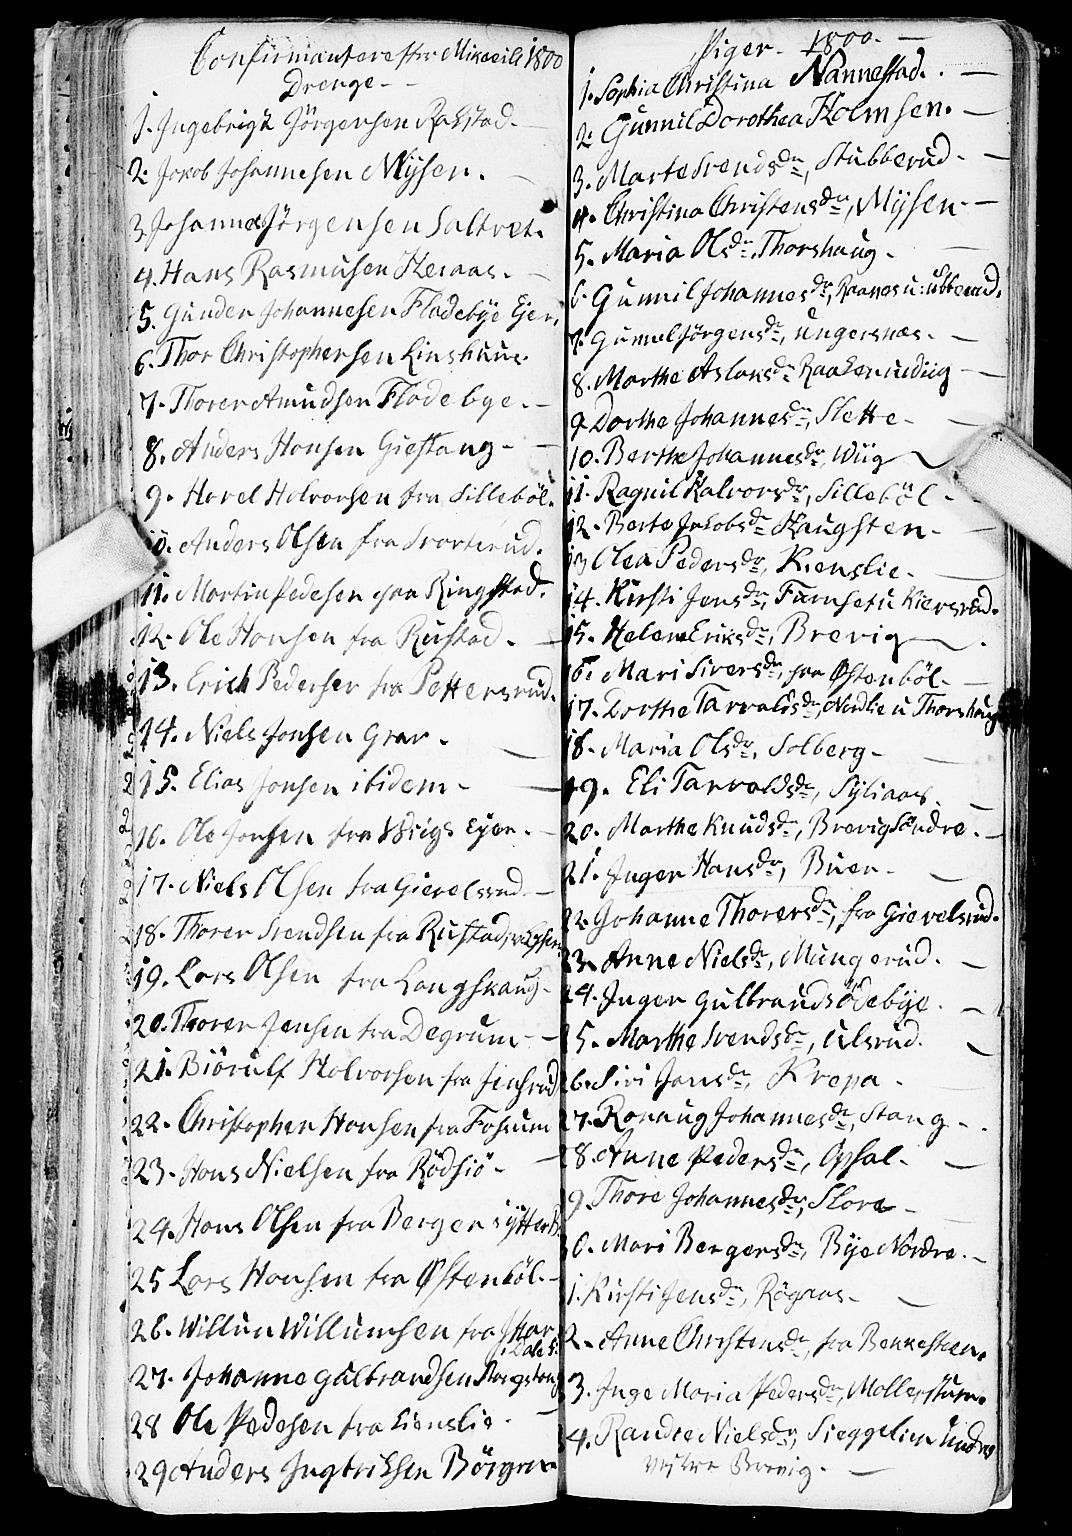 Confirmantere fra Mikaeili 1800
Drenge -
1. Ingebrigt Jörgensen Rakstad.
2. Jokob Johannesen Mÿsen.
3. Johannes Jörgensen Saltvet.
4. Hans Rasmusen Keraas.
5. Gunder Johannesen Fladebÿe Ejer.
6. Thor Christophersen Linshuus.
7. Thorer Amudsen Fladebye.
8. Anders Hansen Giestang
9. Havel Halvorsen fra Silleböl.
10. Anders Olsen fra Svarterud.
11. Martin Pedesen paa Ringstad.
12. Ole Hansen fra Rustad.
13. Erich Pedersen fra Pettersrud.
14. Niels Jonsen Grav.
15. Elias Jonsen ibidem
16. Ole Jonsen fra Eÿer.
17. Niels Olsen fra Gievelsrud
18. Thorer Svendsen fra Rustad,
19. Lars Olsen fra Langskaug
20. Thorer Jensen fra Degrum
21. Biörulf Halvorsen fra
22. Christopher Hansen fra Fossum
23. Hans Nielsen fra Rödsiö
24. Hans Olsen fra Berger ÿtter
25 Lars Hansen fra Østenböl.
26. Willum Willumsen fra
27. Johanne Gulbrandsen
28 Ole Pedesen fra Lienslie
29 Anders Ingbriktsen
Piger. 1800.
1. Sophia Christina Nannestad.
2. Gunnil Dorothea Holmsen.
3. Marte Svendsdr, Stubberud.
4. Christina Christensdr, Mÿsen
5. Maria Olsdr, Thorshaug.
6. Gunnil Johannesdr,
7. Gunnel Jörgensdr, Ungersnæs.
8. Marthe Aslaksdr
9. Dorthe Johannesdr, Slette
10. Berthe Johannesdr, Wiig
11. Ragnil Halvorsdr, Silleböl
12. Berte Jakobsdr Haugsten
13 Olea Pedersdr, Kienslie.
14. Kirsti Jensdr,
15. Helene Eriksdr, Brevig
16. Mari Siversdr, paa Østenböl.
17. Dorthe Tarvalsdr, Nordlie u Thorshaug
18. Maria Olsdr, Solberg
19. Eli Tarvoldsdr, Sÿliaas
20. Marthe Knudsdr, Brevig Söndre.
21. Inger Hansdr, Buer
22. Johanne Thorersdr, fra Gievelsrud.
23. Anne Nielsdr, Mungerud.
24. Inger Gulbrands Ödebÿe.
5. Marthe Svendsdr, Ulsrud.
26. Siri Jansdr, Krepa
27. Ronnug Johannesdr, Stang
28. Anne Pedersdr, Opsal.
9. Thore Johannesdr, Slora
30. Mari Bergersdr, Bÿe Nordre.
1. Kirsti Jensdr, Rögaas
2. Anne Christensdr, fra Bekkesteen.
3. Inge Maria Pedersdr,
4. Randie Nielsdr,
Brevig.